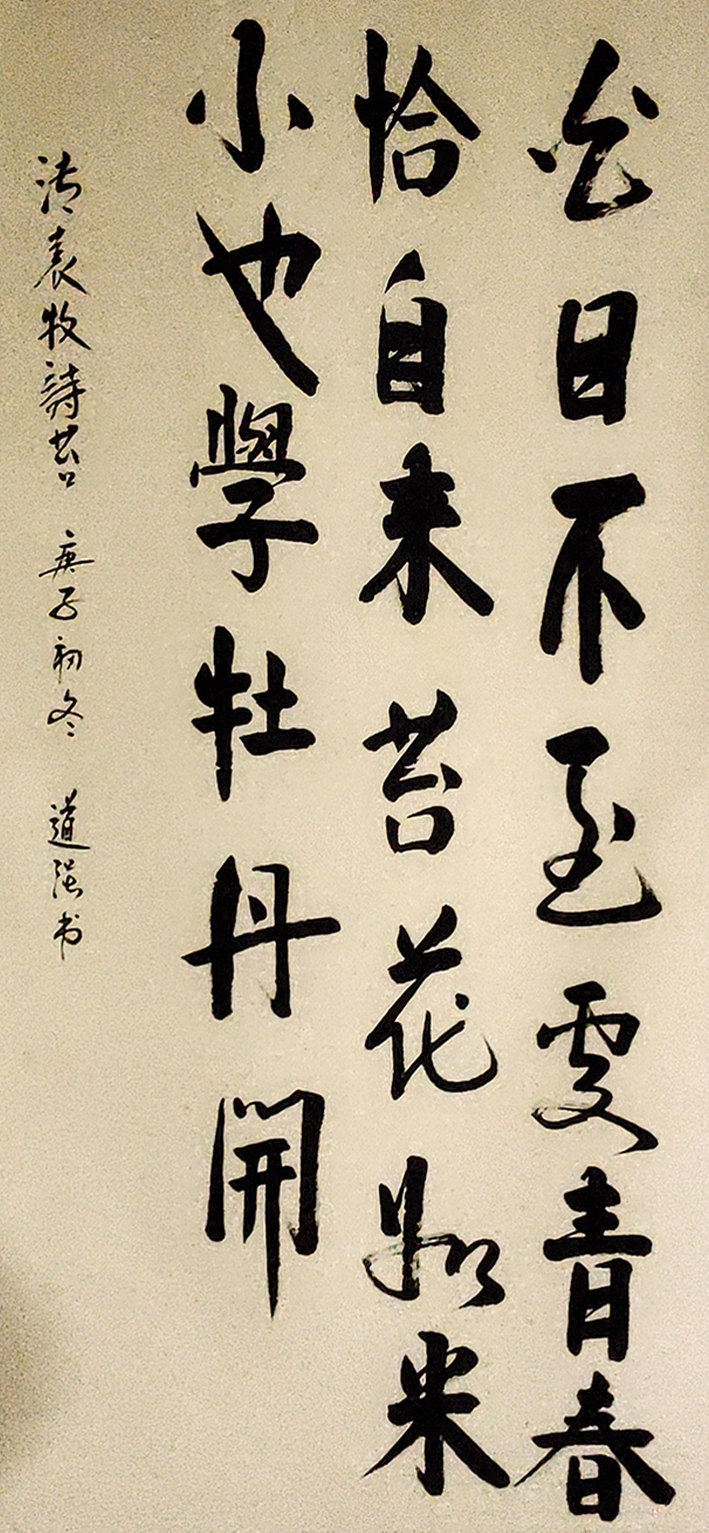 白日不至處青春
恰自来苔花如米
小也學牡丹開
清袁牧詩苔 庚子初冬 道强书